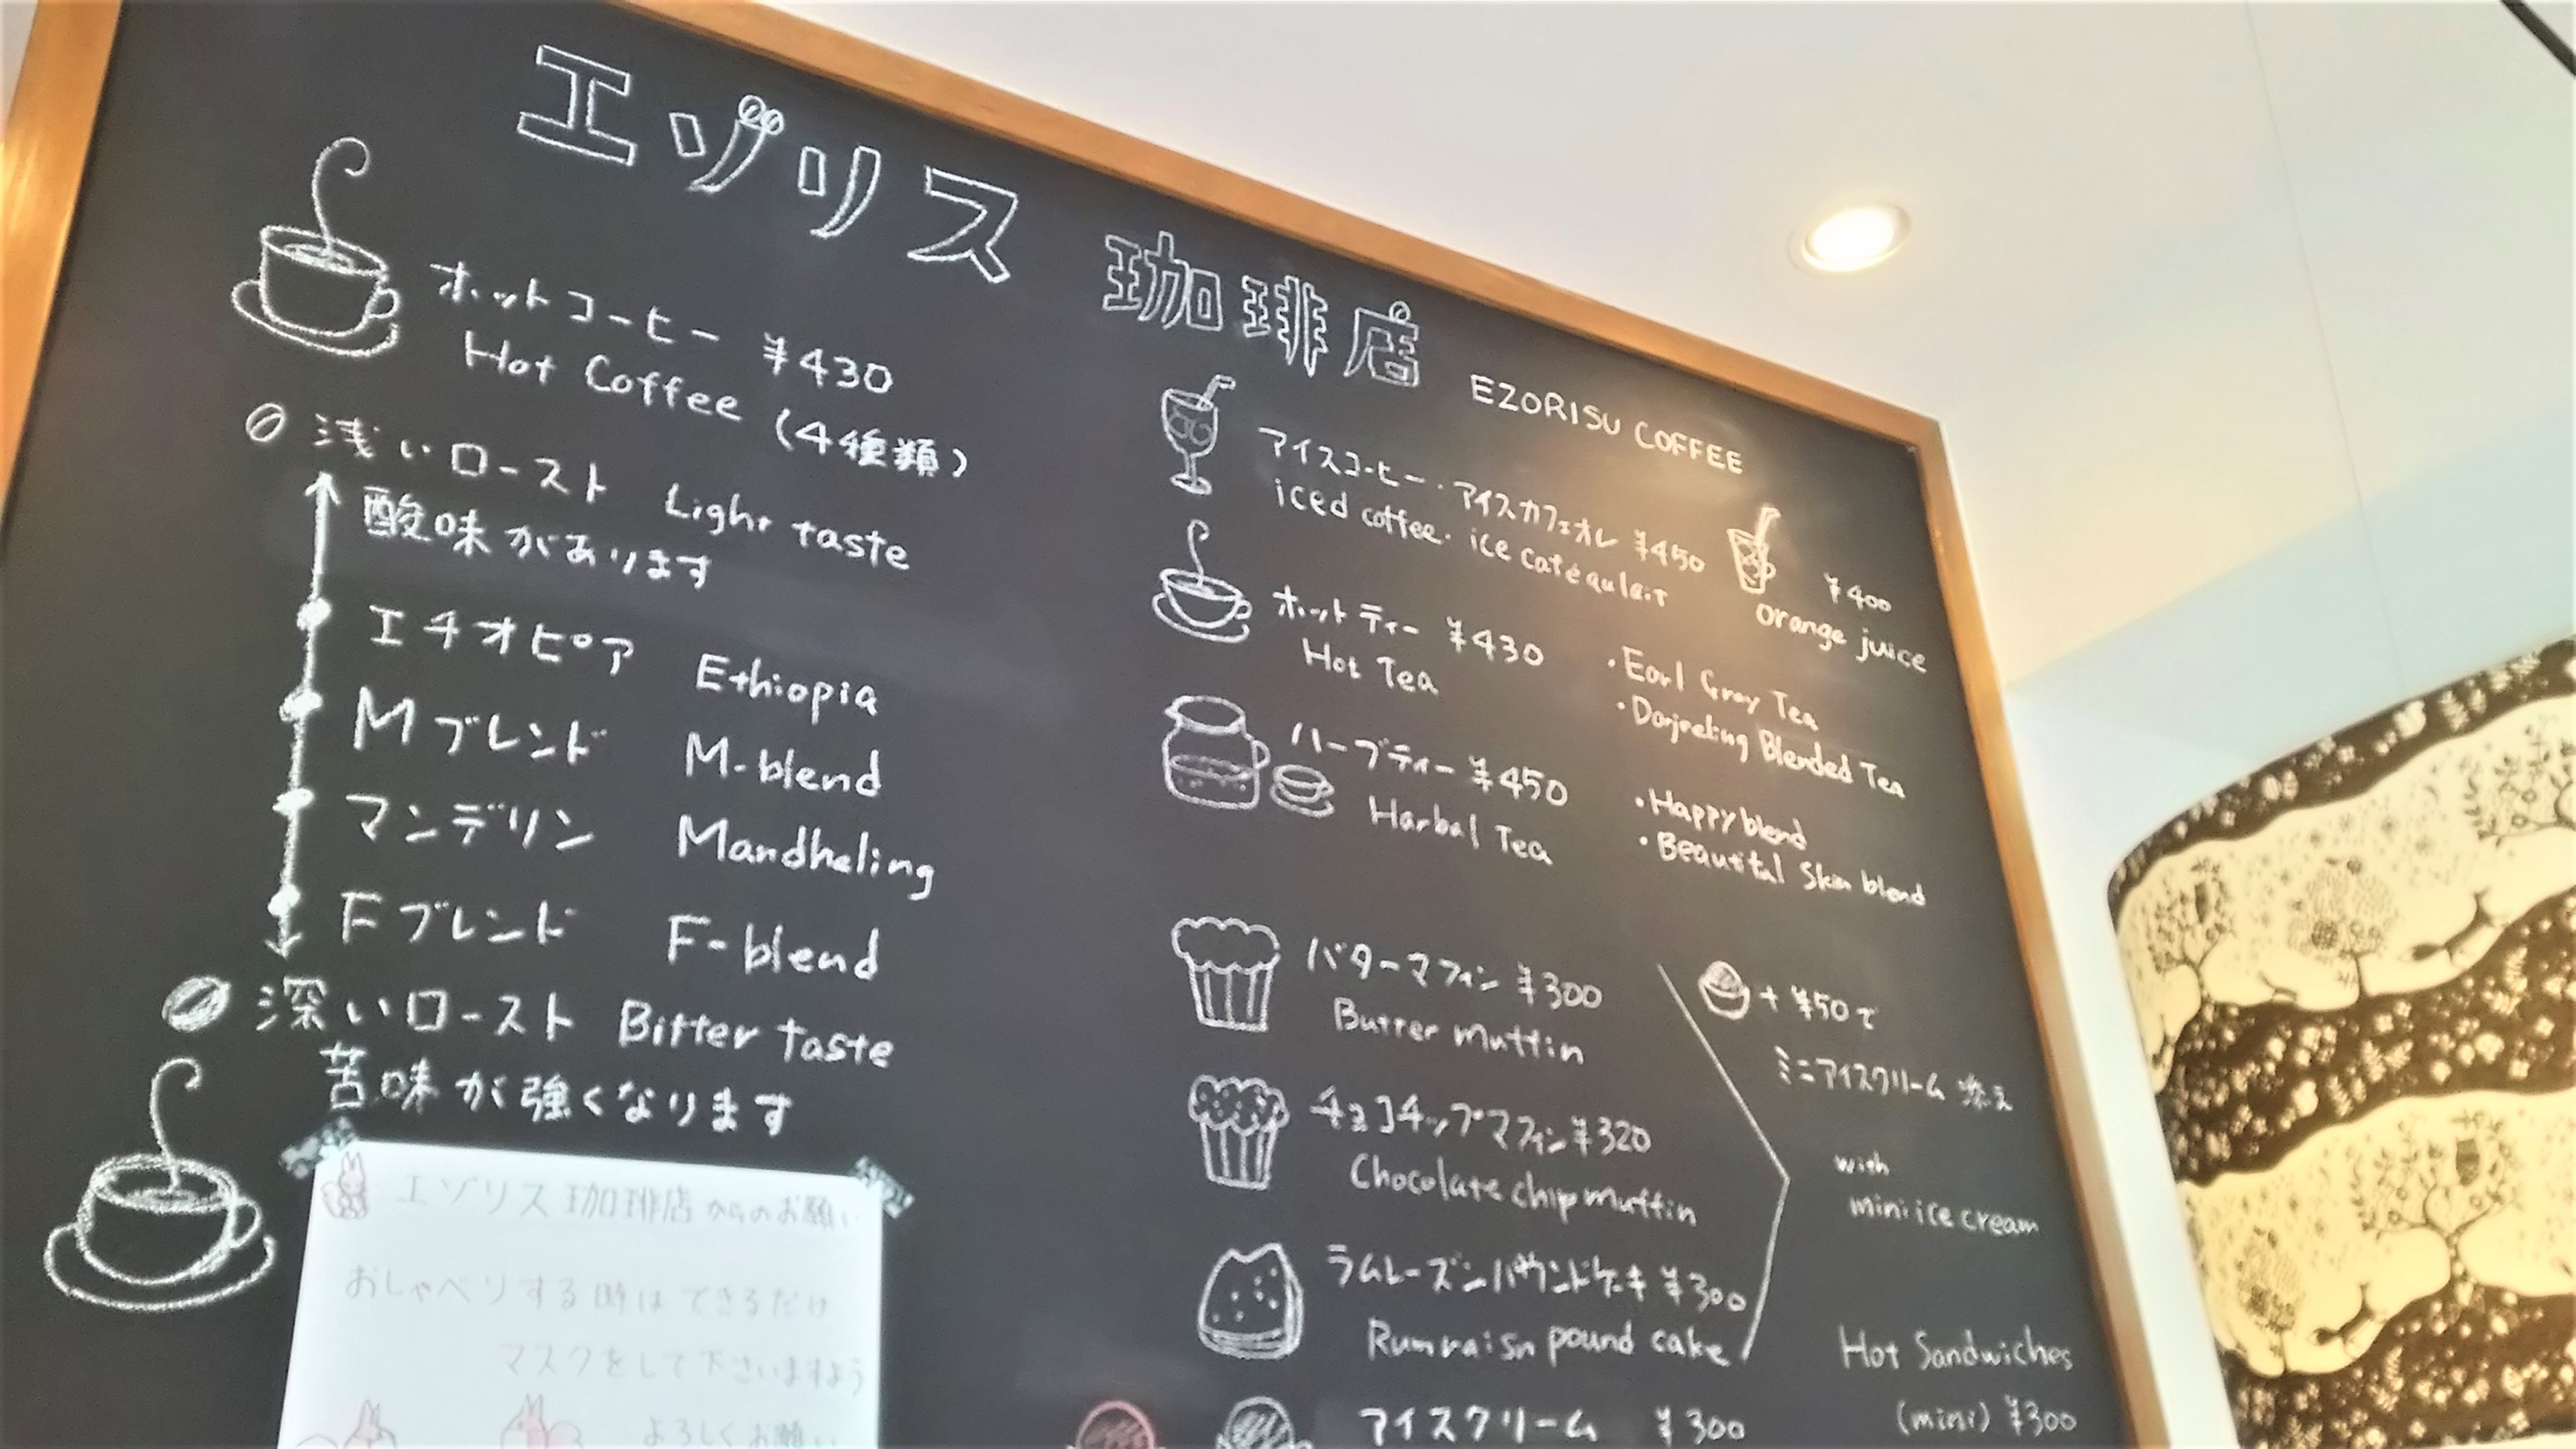 エゾリス 珈琲店 EZORISU COFFEE
ホットコーヒー ¥430
Hot Coffee (4種類)
浅いロースト Light taste
酸味があります
エチオピア Ethiopia
Mブレンド M-blend
マンデリン Mandheling
Fブレンド F-blend
深いロースト Bitter taste
苦味が強くなります
エゾリス珈琲店からのお願い
おしゃべりする時はできるだけ
マスクをして下さいますよう
よろしくお願い
アイスコーヒー・アイスカフェオレ ¥450
iced coffee. ice café au lait
¥400
orange juice
ホットティー ¥430
Hot Tea
・Earl Gray Tea
・Darjeeling Blended Tea
ハーブティー ¥450
Harbal Tea
・Happy blend
・Beautiful Skin blend
バターマフィン ¥300
Butter muffin
チョコチップマフィン ¥320
Chocolate chip muffin
ラムレーズンパウンドケーキ ¥300
Rumraisn pound cake
+ ¥50で
ミニアイスクリーム 添え
with
mini ice cream
アイスクリーム ¥300
Hot Sandwiches
(mini) ¥300